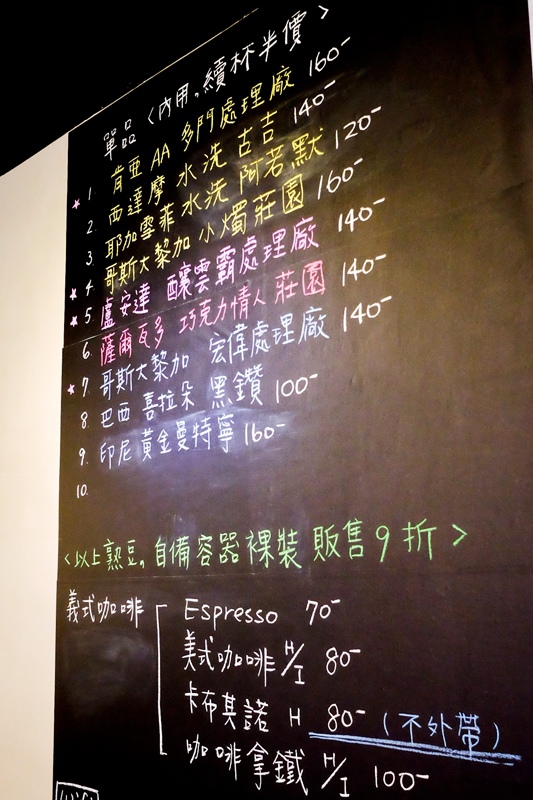 單品〈內用,續杯半價〉
★ 1. 肯亞 AA 多門處理廠 160-
2. 西達摩 水洗 古吉 140-
3. 耶加雪菲 水洗 阿若默 120-
★ 4. 哥斯大黎加 小燭莊園 160-
★ 5. 盧安達 釀雲霸處理廠 140-
6. 薩爾瓦多 巧克力情人莊園 140-
★ 7. 哥斯大黎加 宏偉處理廠 140-
8. 巴西 喜拉朵 黑鑽 100-
9. 印尼 黃金曼特寧 160-
10.
〈以上熟豆,自備容器裸裝 販售9折〉
義式咖啡
Espresso 70-
美式咖啡 H/I 80-
卡布其諾 H 80-(不外帶)
咖啡拿鐵 H/I 100-